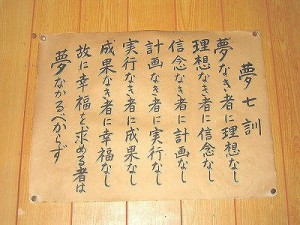 夢七訓
夢なき者に理想なし
理想なき者に信念なし
信念なき者に計画なし
計画なき者に実行なし
実行なき者に成果なし
成果なき者に幸福なし
故に幸福を求める者は
夢なかるべからず